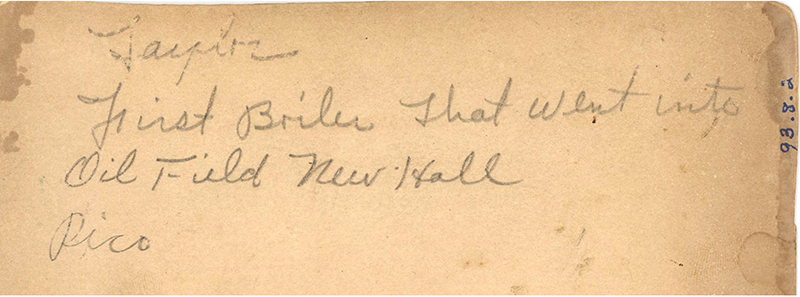 Taylor
First Boiler That Went into
Oil Field New Hall
Pico
93.8.2